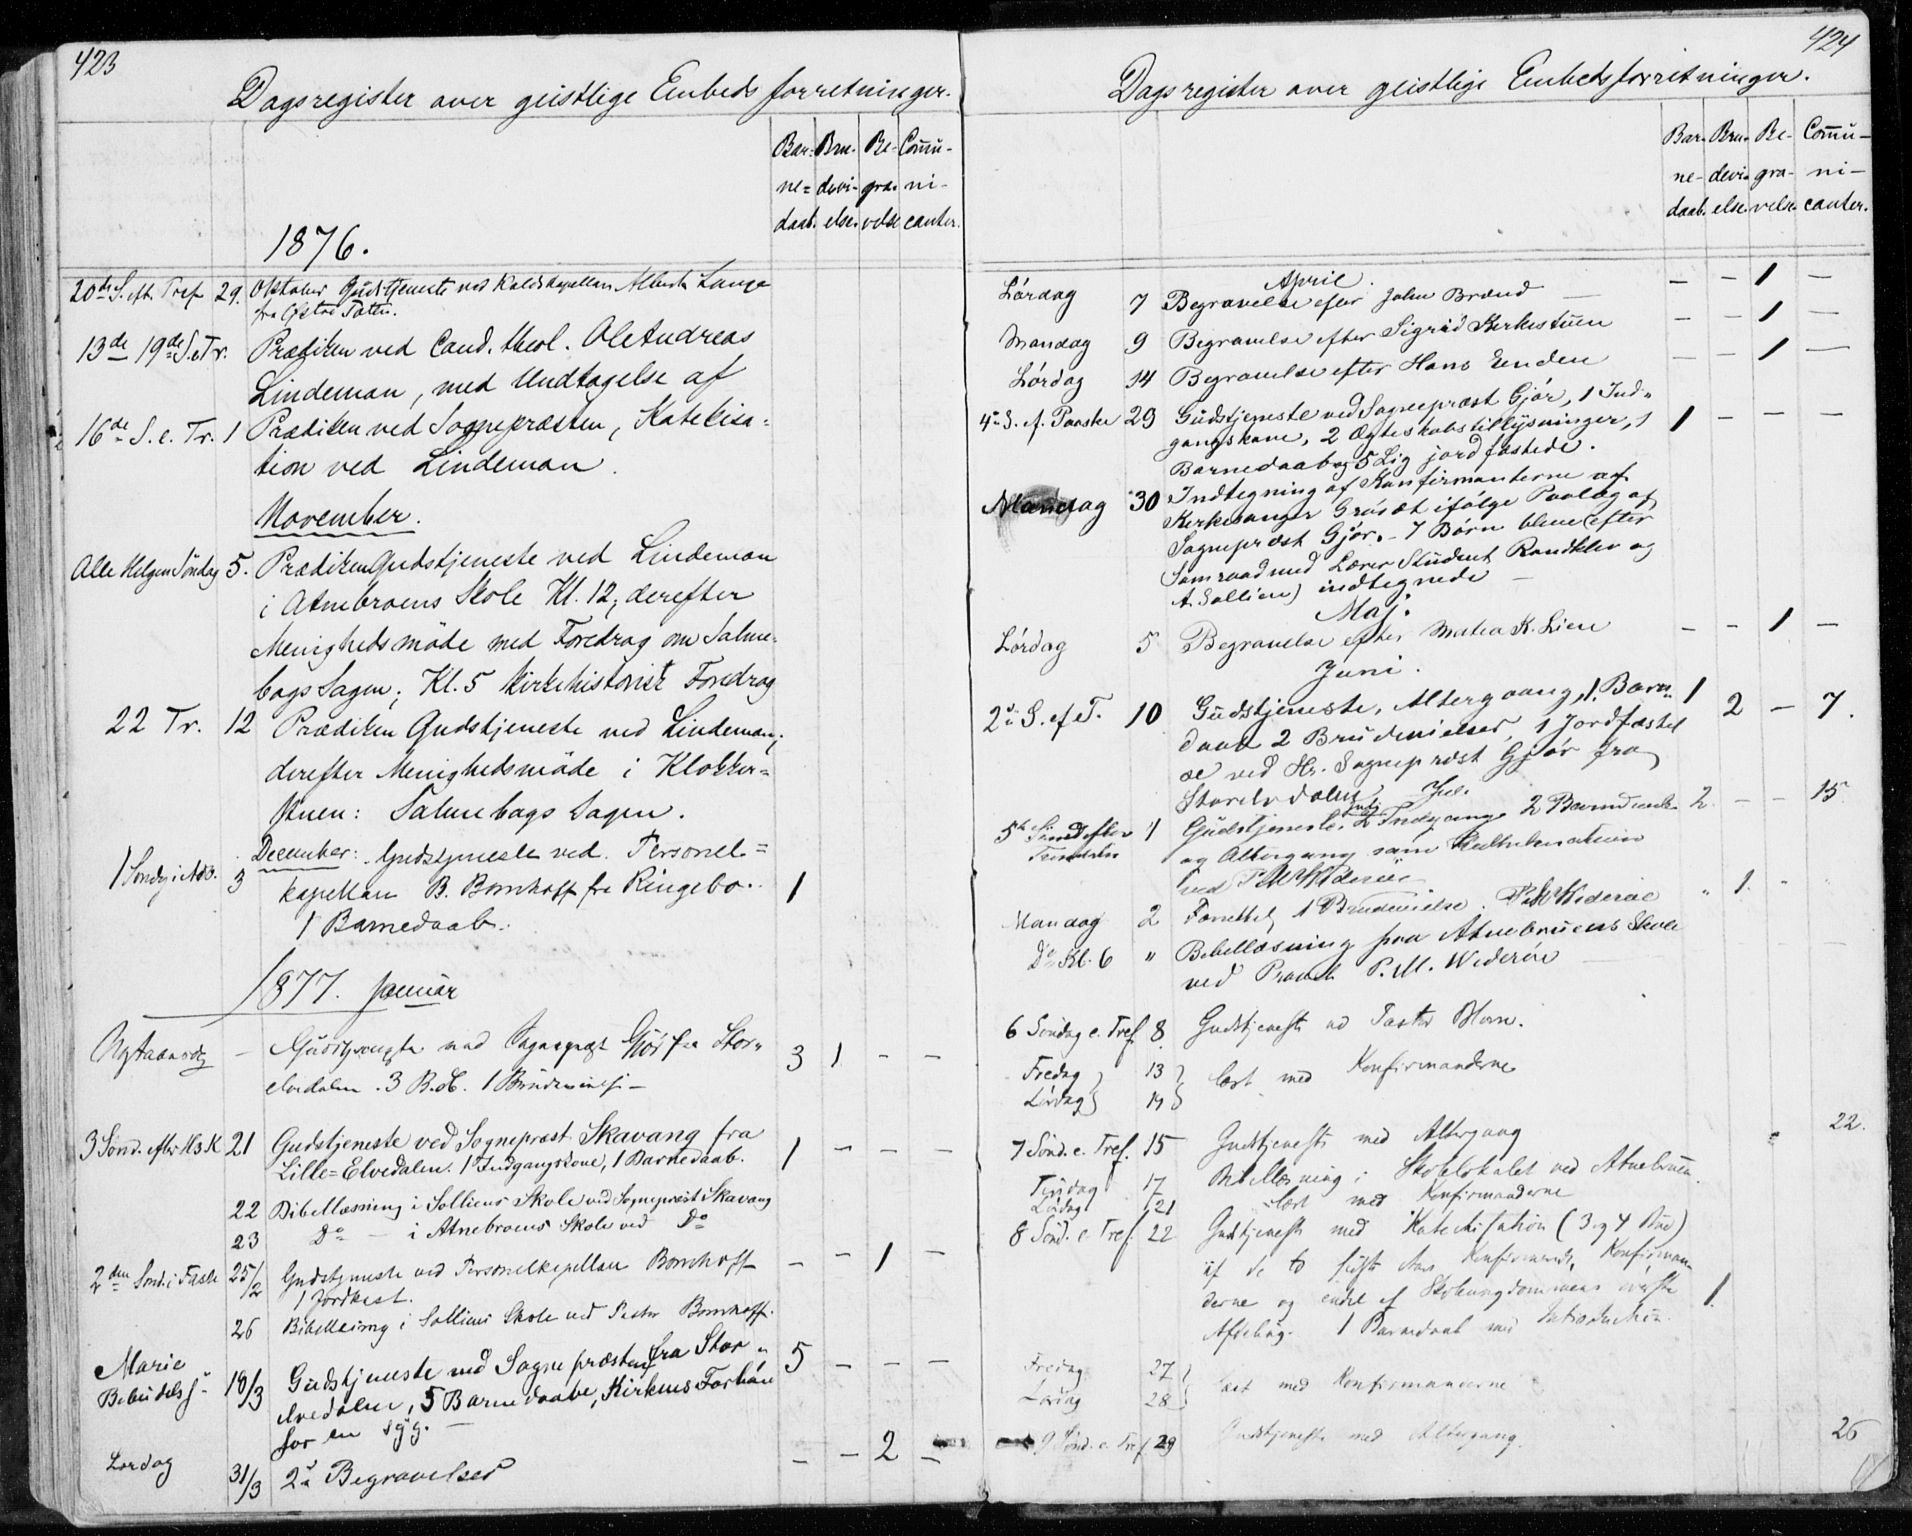 423
Dagsregister over geistlige Embedsforretninger.
Bar- Bru- Be- Commu-
ne- devi- gra- ni-
daab. else. velse canter.
1876.
20de S. eft. Tref 29. Oktober Gudstjeneste ved Kaldskapellan Alberth Lange
fra Østre Toten.
13de 19de S.e.Tr. Prædiken ved Cand. theol. Ole Andreas
Lindeman, med Undtagelse af
16de S. e. Tr. 1 Prædiken ved Sognepræsten, Katekisa-
tion ved Lindeman.
November.
Alle Helgen Søndag 5. Prædiken Gudstjeneste ved Lindeman
i Atnebroens Skole Kl. 12, derefter
Menighedsmøde med Foredrag om Salme-
bogs Sagen; Kl. 5 Kirkehistorisk Foredrag
22 Tr. 12 Prædiken Gudstjeneste ved Lindeman,
derefter Menighedsmøde i Klokker-
stuen: Salmebogs Sagen.
1 Søndg i Adv. 3 December: Gudstjeneste ved Personel-
kapellan B. Bornhoff fra Ringebo. 1
1 Barnedaab.
1877. Januar
Nytaarsdg - Gudstjeneste ved Sognepræst Gjør fra Stor-
elvedalen. 3 B.d. 1 Brudevielse - 3 1 - -
3 Sønd. efter H3K 21 Gudstjeneste ved Sognepræst Skavang fra
Lille-Elvedalen. 1 Indgangskone, 1 Barnedaab. 1 - - -
22 Bibellæsning i Solliens Skole ved Sognepræst Skavang
23 Do - i Atnebroens Skole ved Do
2den Sønd. i Faste 25/2 Gudstjeneste ved Personelkapellan Bornhoff - - 1 -
1 Jordkast.
26 Bibellæsng i Solliens Skole ved Pastor Bornhoff.
Marie
Bebudelse 18/3 Gudstjeneste ved Sognepræsten fra Stor- 5 - - -
elvedalen, 5 Barnedaabe, Kirkens Forbøn
for en syg. -
Lørdag 31/3 2 Begravelser - - 2 -
424
Dagsregister over geistlige Embedsforretninger.
Bar- Bru- Be- Commu-
ne- devi- gra- ni-
daab. else. velse. canter.
April.
Lørdag 7 Begravelse efter John Brænd - - - 1 -
Mandag 9 Begravelse efter Sigrid Kirkestuen - - 1 -
Lørdag 14 Begravelse efter Hans Enden - - 1 -
4de S. e. Paaske 29 Gudstjeneste ved Sognepræst Gjør, 1 Ind-
gangskone, 2 Ægteskabstillysninger, 1 1 - - -
Barnedaab og 5 Lig jordfæstede.
Mandag 30 Indtegning af Konfirmanterne af
Kirkesanger Grøsæt ifølge Paalæg af
Sognepræst Gjør. - 7 Børn bleve (efter
Samraad med Lærer Student Randklev og
A. Sollien) indtegnede -
Maj.
Lørdag 5 Begravelse efter Mathea K. Lien - - 1 -
Juni.
2den S. ef. T. 10 Gudstjeneste, Altergaang, 1. Barne- 1 2 - 7.
daab 2 Brudevielser, 1 Jordfæstel
se ved Hr. Sognepræst Gjør fra
Storelvdalen
Juli
5te Sønd efter 1 Gudstjeneste, 2 Indgangs 2 Barnedaab 2 - - 15
Trinitatis og Altergang samt
ved P. M. Widerøe
Mandag 2 Forrettet 1 Brudevielse. P. M. Widerøe " 1. "
Do Kl. 6 " Bibellæsning paa Atnebruens Skole
ved P. M. Widerøe -
6 Søndag e. Tref. 8. Gudstjeneste ved Pastor Horn.
Fredag } 13 } læst med Konfirmanderne
Lørdag } 14 }
7 Sønd. e. Tref. 15 Gudstjeneste med Altergang 22.
Tirsdag 17 Bibellæsning i Skolelokalet ved Atnebruen.
Lørdag 21 læst med Konfirmanderne
8 Sønd. e. Tref. 22 Gudstjeneste med Katechisation (3 og 4 Bud)
af de to sidste Aars Konfirmerede, Konfirman-
derne og endel af Skoleungdommens øverste
Afdeling. 1 Barnedaab med Introduction. 1.
Fredag 27 } læst med Konfirmanderne
Lørdag 28 }
9 Sønd. e. Tref. 29 Gudstjeneste med Altergang. 26